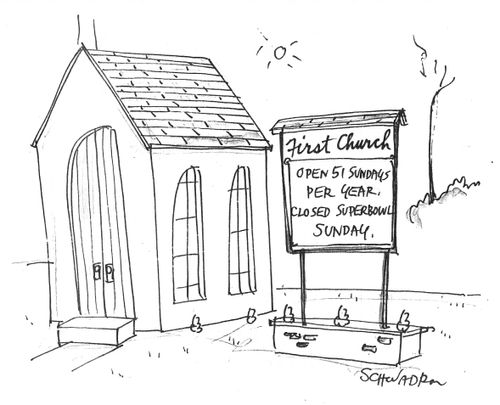 First Church
OPEN 51 SUNDAYS
PER YEAR.
CLOSED SUPERBOWL
SUNDAY.
SCHWADRON